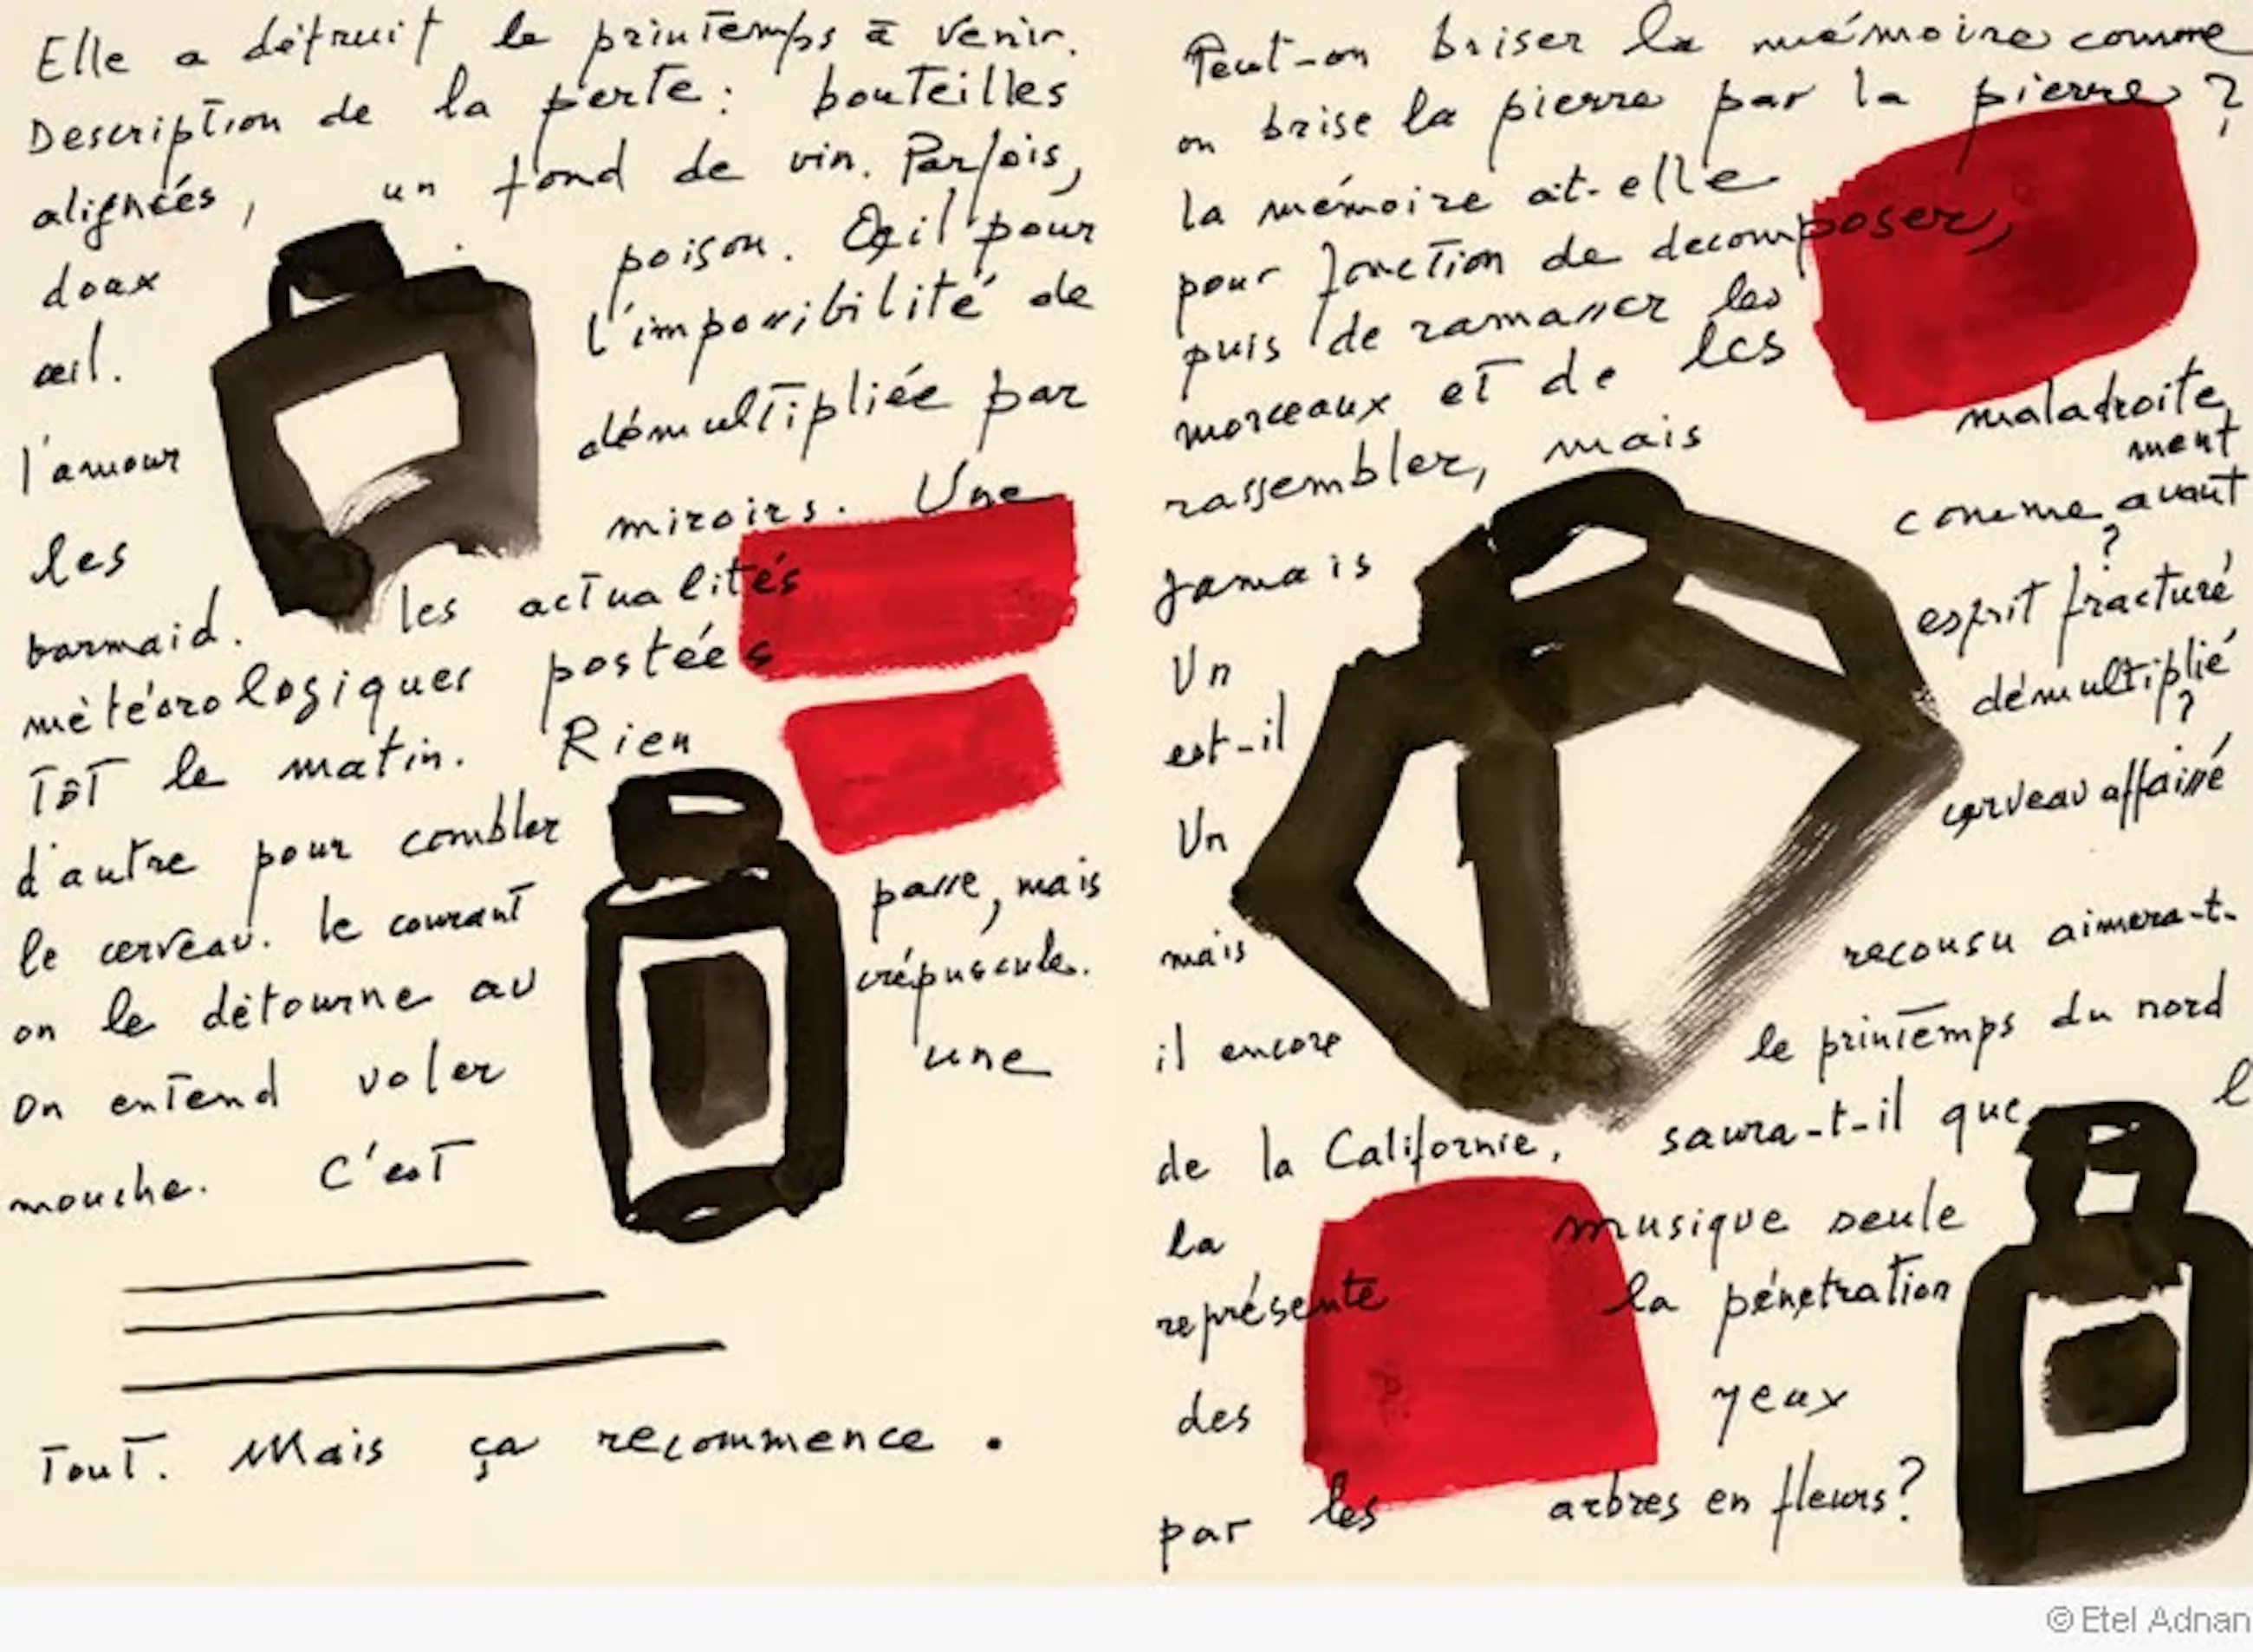 Elle a détruit le printemps à venir.
Description de la perte : bouteilles
alignées, un fond de vin. Parfois,
doux poison. Œil pour
œil. l'impossibilité de
l'amour démultipliée par
les miroirs. Une
barmaid. les actualités
météorologiques postées
Tôt le matin. Rien
d'autre pour combler
le cerveau. le courant passe, mais
on le détourne au crépuscule.
On entend voler une
mouche. C'est
Tout. Mais ça recommence.
Peut-on briser la mémoire comme
on brise la pierre par la pierre ?
la mémoire at-elle
pour fonction de decomposer,
puis de ramasser les
morceaux et de les
rassembler, mais maladroite
ment
Jamais comme avant
?
Un esprit fracturé
est-il démultiplié
?
Un cerveau affaissé
mais recousu aimera-t-
il encore le printemps du nord
de la Californie, saura-t-il que l
la musique seule
représente la pénetration
des yeux
par les arbres en fleurs?
© Etel Adnan